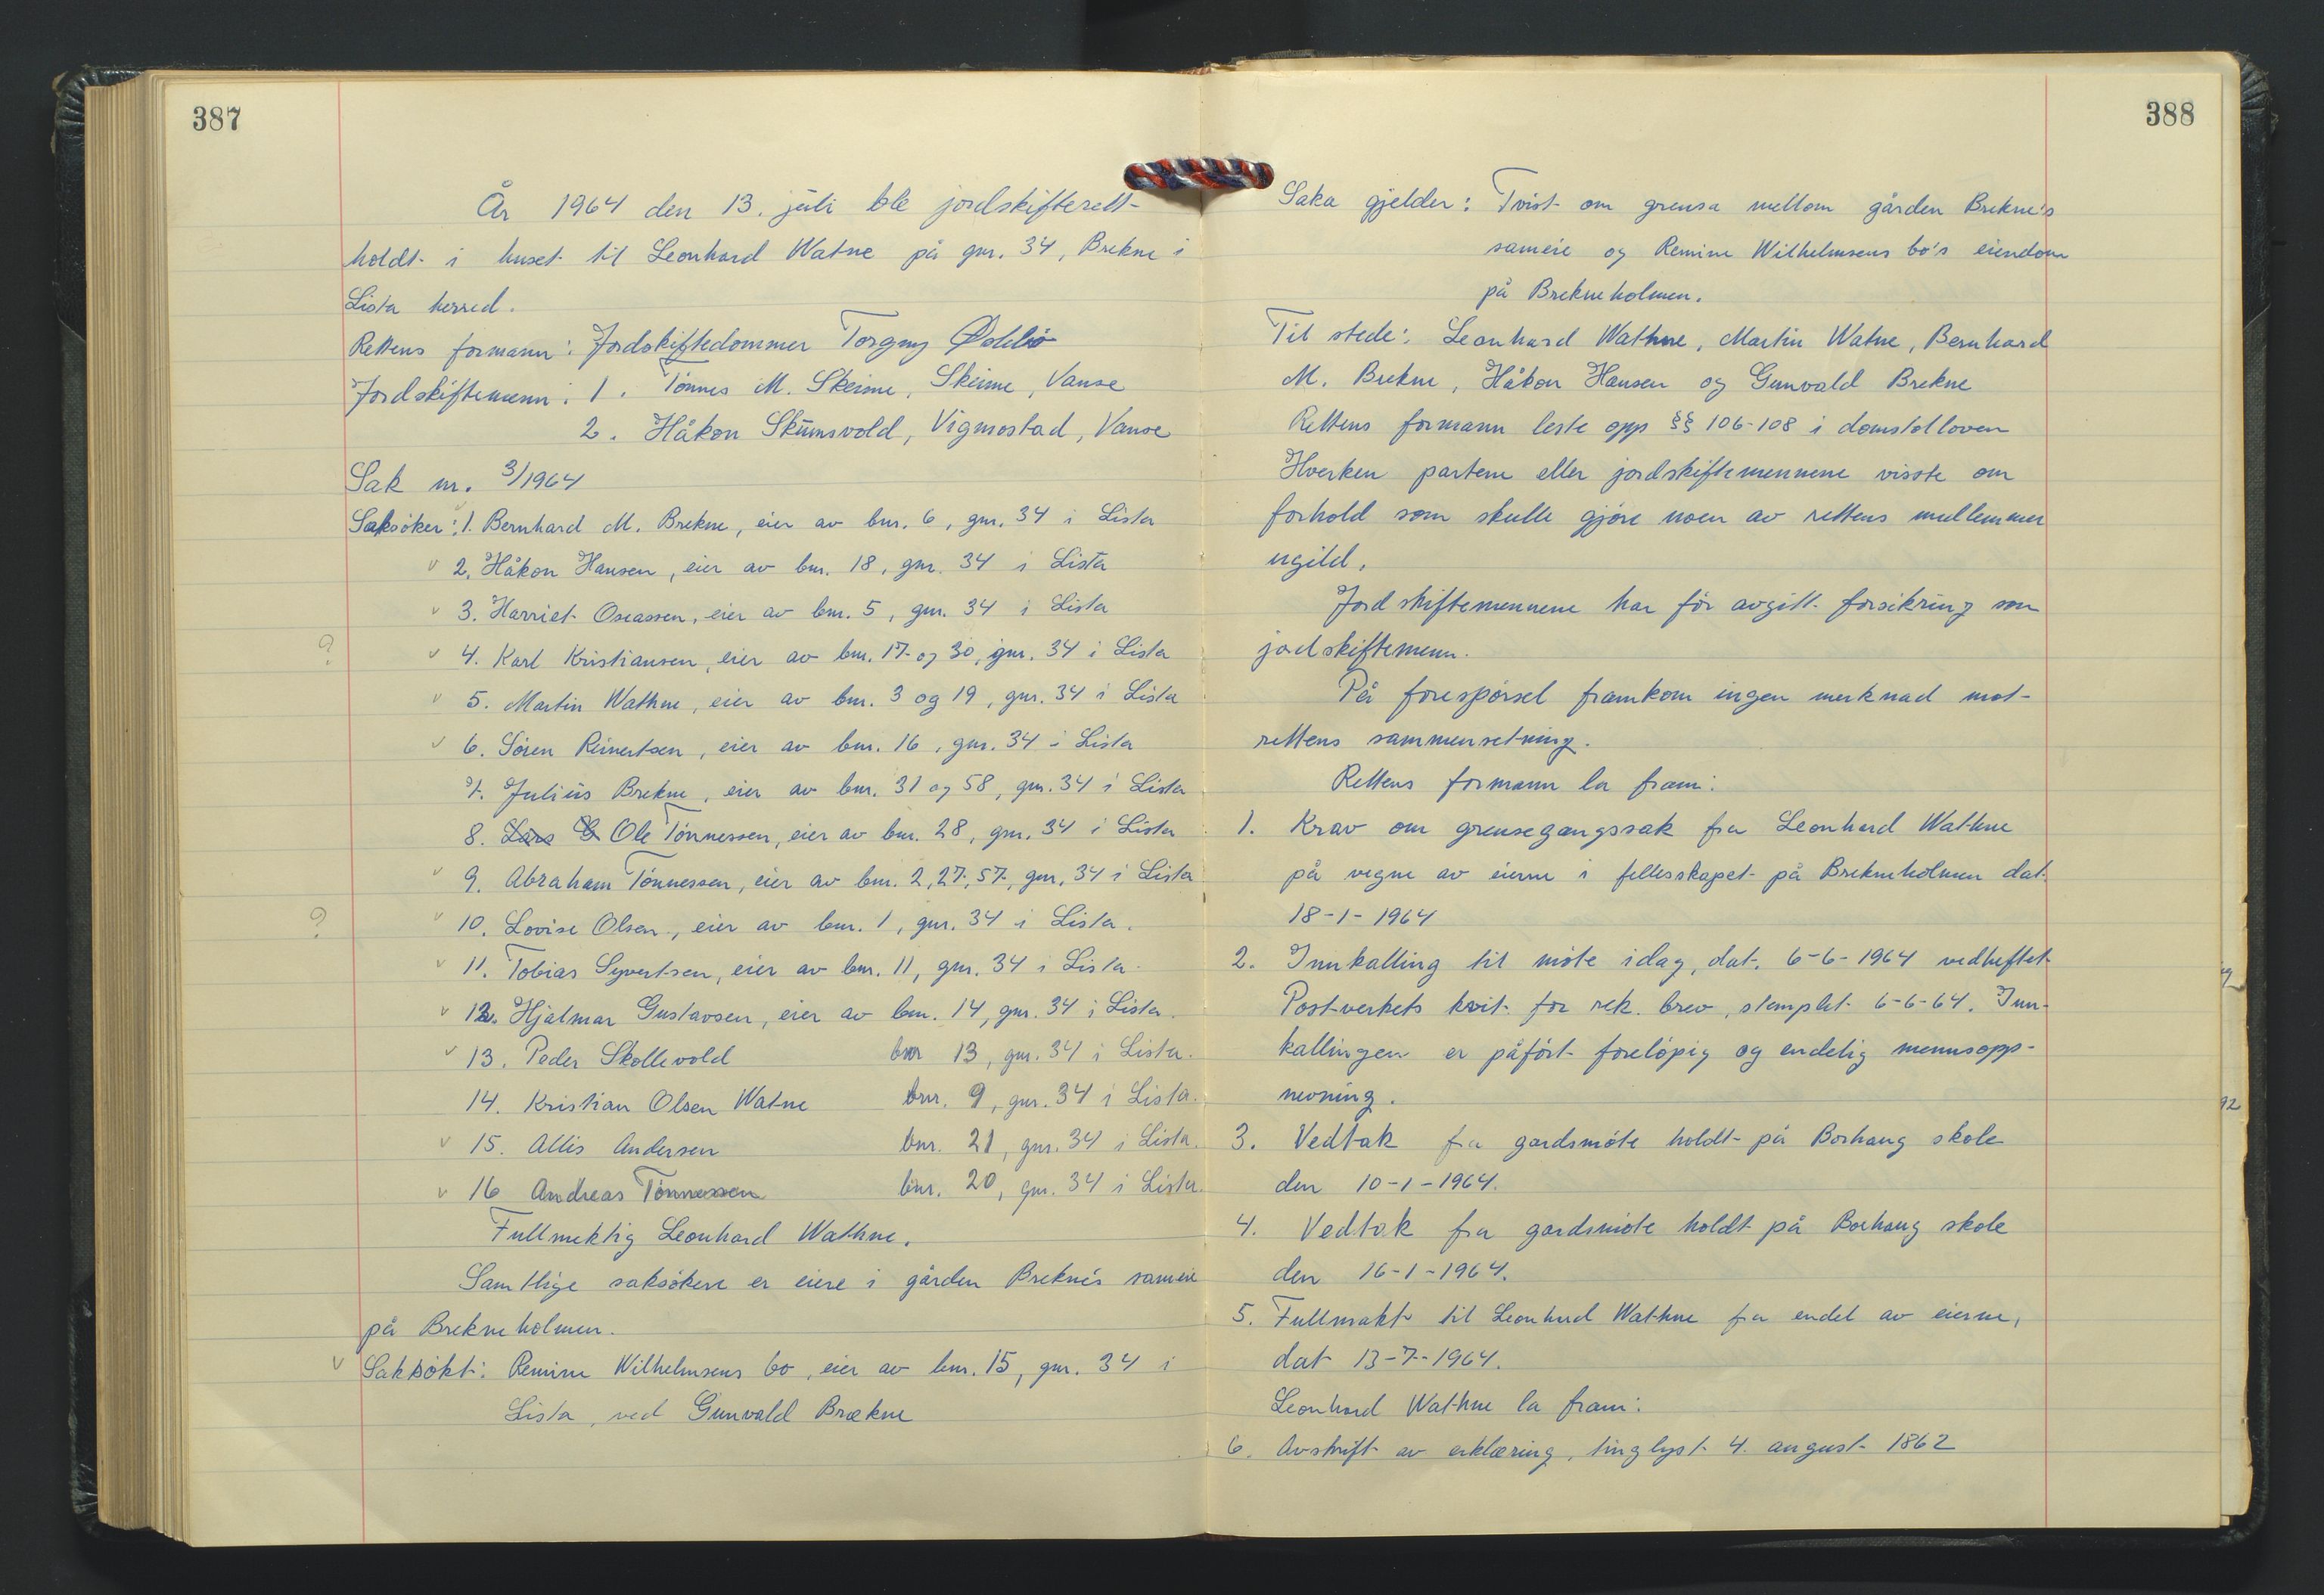 387
År 1964 den 13. juli ble jordskifterett
holdt i huset til Leonhard Watne på gnr. 34, Brekne i
Lista herred.
Rettens formann: Jordskiftedommer Torgny Ødebø
Jordskiftemenn: 1. Tönnes M. Skeime, Skeime, Vanse
2. Håkon Skumsvold, Vigmostad, Vanse
Sak nr. 3/1964
Saksöker: 1. Bernhard M. Brekne, eier av bnr. 6, gnr. 34 i Lista
v 2. Håkon Hansen, eier av bnr. 18, gnr. 34 i Lista
v 3. Harriet Oseassen, eier av bnr. 5, gnr. 34 i Lista
? v 4. Karl Kristiansen, eier av bnr. 17 og 30, gnr. 34 i Lista
v 5. Martin Wathne, eier av bnr. 3 og 19, gnr. 34 i Lista
v 6. Sören Reinertsen, eier av bnr. 16, gnr. 34 i Lista
7. Julius Brekne, eier av bnr. 31 og 58, gnr. 34 i Lista
8. Lars Ole Tönnessen, eier av bnr. 28, gnr. 34 i Lista
v 9. Abraham Tönnessen, eier av bnr. 2, 27, 57, gnr. 34 i Lista
? v 10. Lovise Olsen, eier av bnr. 1, gnr. 34 i Lista.
v 11. Tobias Syvertsen, eier av bnr. 11, gnr. 34 i Lista.
v 12. Hjalmar Gustavsen, eier av bnr. 14, gnr. 34 i Lista.
v 13. Peder Skollevold bnr 13, gnr. 34 i Lista.
14. Kristian Olsen Watne bnr. 9, gnr. 34 i Lista.
v 15. Allis Andersen bnr. 21, gnr. 34 i Lista.
v 16 Andreas Tönnessen bnr. 20, gnr. 34 i Lista.
Fullmektig Leonhard Wathne.
Samtlige saksökere er eiere i gården Brekne's sameie
på Brekneholmen.
v Saksökt: Remine Wilhelmsens bo, eier av bnr. 15, gnr. 34 i
Lista, ved Gunvald Brækne
388
Saka gjelder: Tvist om grensa mellom gården Brekne's
sameie og Remine Wilhelmsens bo's eiendom
på Brekneholmen.
Til stede: Leonhard Wathne, Martin Watne, Bernhard
M. Brekne, Håkon Hansen og Gunvald Brekne
Rettens formann leste opp §§ 106-108 i domstolloven
Hverken partene eller jordskiftemennene visste om
forhold som skulle gjöre noen av rettens medlemmer
ugild.
Jordskiftemennene har för avgitt forsikring som
jordskiftemenn.
På forespörsel framkom ingen merknad mot
rettens sammensetning.
Rettens formann la fram:
1. Krav om grensegangssak fra Leonhard Wathne
på vegne av eierne i fellesskapet på Brekneholmen dat.
18-1-1964
2. Innkalling til möte idag, dat. 6-6-1964 vedheftet
Postverkets kvit. for rek. brev, stemplet 6-6-64. Inn-
kallingen er påfört forelöpig og endelig mennsopp-
nevning.
3. Vedtak fra gardsmöte holdt på Borhaug skole
den 10-1-1964.
4. Vedtak fra gardsmöte holdt på Borhaug skole
den 16-1-1964.
5. Fullmakt til Leonhard Wathne fra endel av eierne,
dat 13-7-1964.
Leonhard Wathne la fram:
6. Avskrift av erklæring, tinglyst 4. august 1862